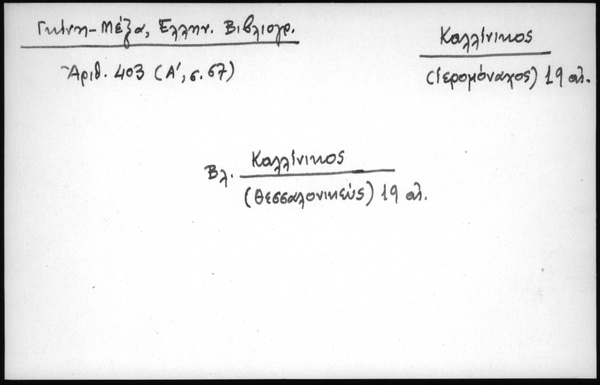 Γκίνη-Μέξα, Ἑλλην. Βιβλιογρ.
Ἀριθ. 403 (Α', σ. 67)
Καλλίνικος
(ἱερομόναχος) 19 αἰ.
Βλ. Καλλίνικος
(Θεσσαλονικεύς) 19 αἰ.